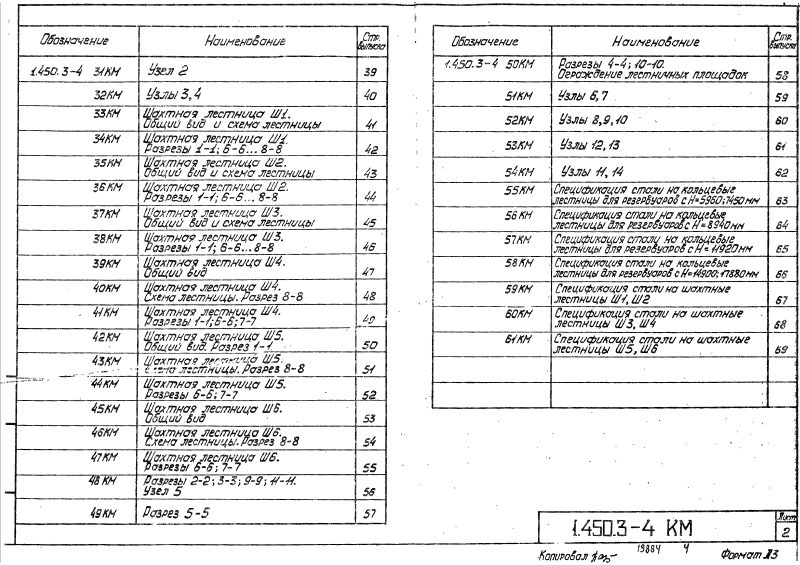 Обозначение Наименование Стр. выпуска
1.450.3-4 31КМ Узел 2 39
32КМ Узлы 3,4 40
33КМ Шахтная лестница Ш1.
Общий вид и схема лестницы 41
34КМ Шахтная лестница Ш1.
Разрезы 1-1; 6-6... 8-8 42
35КМ Шахтная лестница Ш2.
Общий вид и схема лестницы 43
36КМ Шахтная лестница Ш2.
Разрезы 1-1; 6-6... 8-8 44
37КМ Шахтная лестница Ш3.
Общий вид и схема лестницы 45
38КМ Шахтная лестница Ш3.
Разрезы 1-1; 6-6... 8-8 46
39КМ Шахтная лестница Ш4.
Общий вид 47
40КМ Шахтная лестница Ш4.
Схема лестницы. Разрез 8-8 48
41КМ Шахтная лестница Ш4.
Разрезы 1-1; 6-6; 7-7 49
42КМ Шахтная лестница Ш5.
Общий вид. Разрез 1-1. 50
43КМ Шахтная лестница Ш5.
Схема лестницы. Разрез 8-8 51
44КМ Шахтная лестница Ш5.
Разрезы 6-6; 7-7 52
45КМ Шахтная лестница Ш6.
Общий вид 53
46КМ Шахтная лестница Ш6.
Схема лестницы. Разрез 8-8 54
47КМ Шахтная лестница Ш6.
Разрезы 6-6; 7-7 55
48КМ Разрезы 2-2; 3-3; 9-9; 11-11.
Узел 5 56
49КМ Разрез 5-5 57
Обозначение Наименование Стр. выпуска
1.450.3-4 50КМ Разрезы 4-4; 10-10.
Ограждение лестничных площадок 58
51КМ Узлы 6,7 59
52КМ Узлы 8,9,10 60
53КМ Узлы 12,13 61
54КМ Узлы 11,14 62
55КМ Спецификация стали на кольцевые
лестницы для резервуаров с Н=5960;7450мм 63
56КМ Спецификация стали на кольцевые
лестницы для резервуаров с Н=8940мм 64
57КМ Спецификация стали на кольцевые
лестницы для резервуаров с Н=11920мм 65
58КМ Спецификация стали на кольцевые
лестницы для резервуаров с Н=14900;17880мм 66
59КМ Спецификация стали на шахтные
лестницы Ш1, Ш2 67
60КМ Спецификация стали на шахтные
лестницы Ш3, Ш4 68
61КМ Спецификация стали на шахтные
лестницы Ш5, Ш6 69
1.450.3-4 КМ
Лист
2
Копировал 19884 4 Формат А3